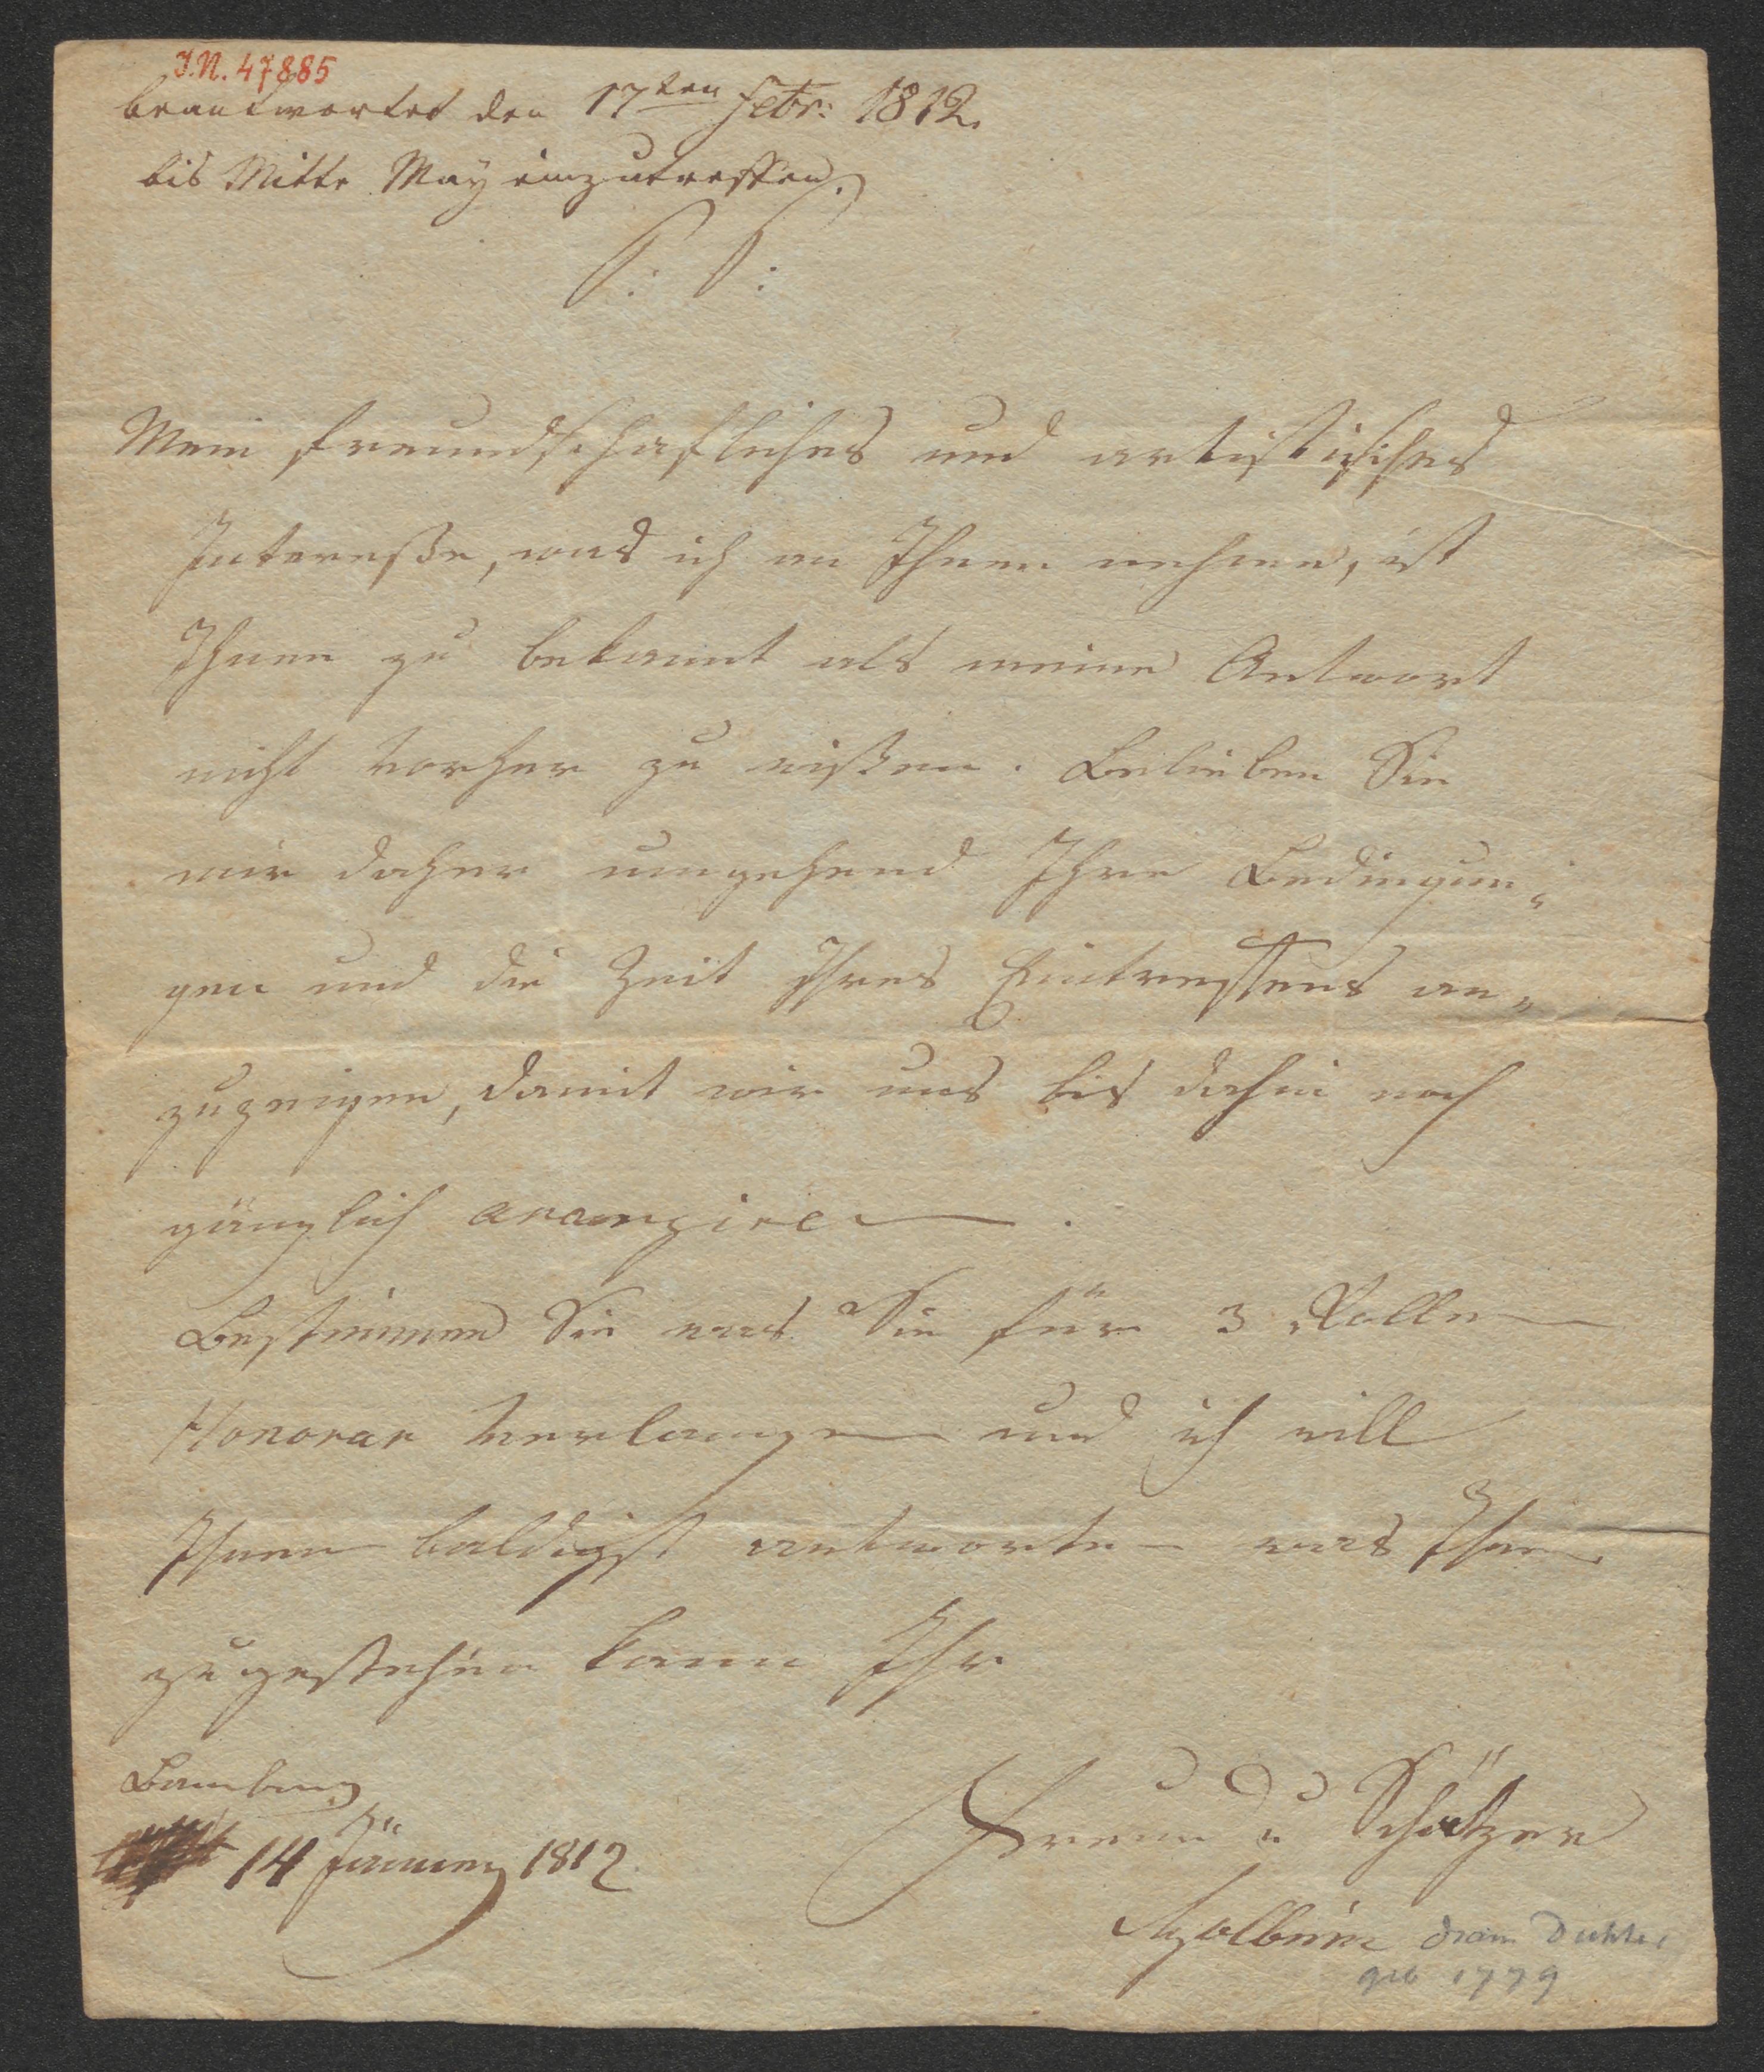 J.N. 47885
beantwortet den 17ten Febr: 1812.
bis Mitte May einzutreffen.
P: P:
Mein freundschaftliches und artistisches
Intereße, was ich an Ihnen nehme, ist
Ihnen zu bekannt als meine Antwort
nicht vorher zu wißen. Belieben Sie
mir daher umgehend Ihre Bedingun-
gen und die Zeit Ihres Eintreffens an-
zuzeigen, damit wir uns bis dahin noch
gänzlich arangiren.
Bestimmen Sie was Sie für 3 Rollen
Honorar verlangen und ich will
Ihnen baldigst antworten was Ihnen
zugestehen kann Ihr
Bamberg
14 Jänner 1812
Freund u Schätzer
Holbein dram Dichter
geb 1779